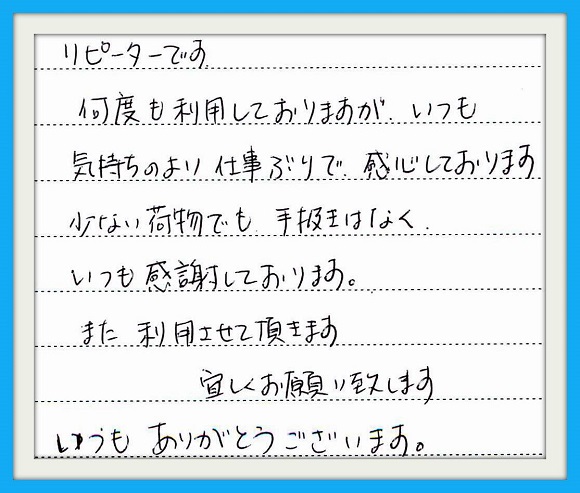 リピーターです
何度も利用しておりますが、いつも
気持ちのより仕事ぶりで、感心しております
少ない荷物でも、手扱きはなく、
いつも感謝しております。
また 利用させて頂きます
宜しくお願い致します
いつも ありがとうございます。